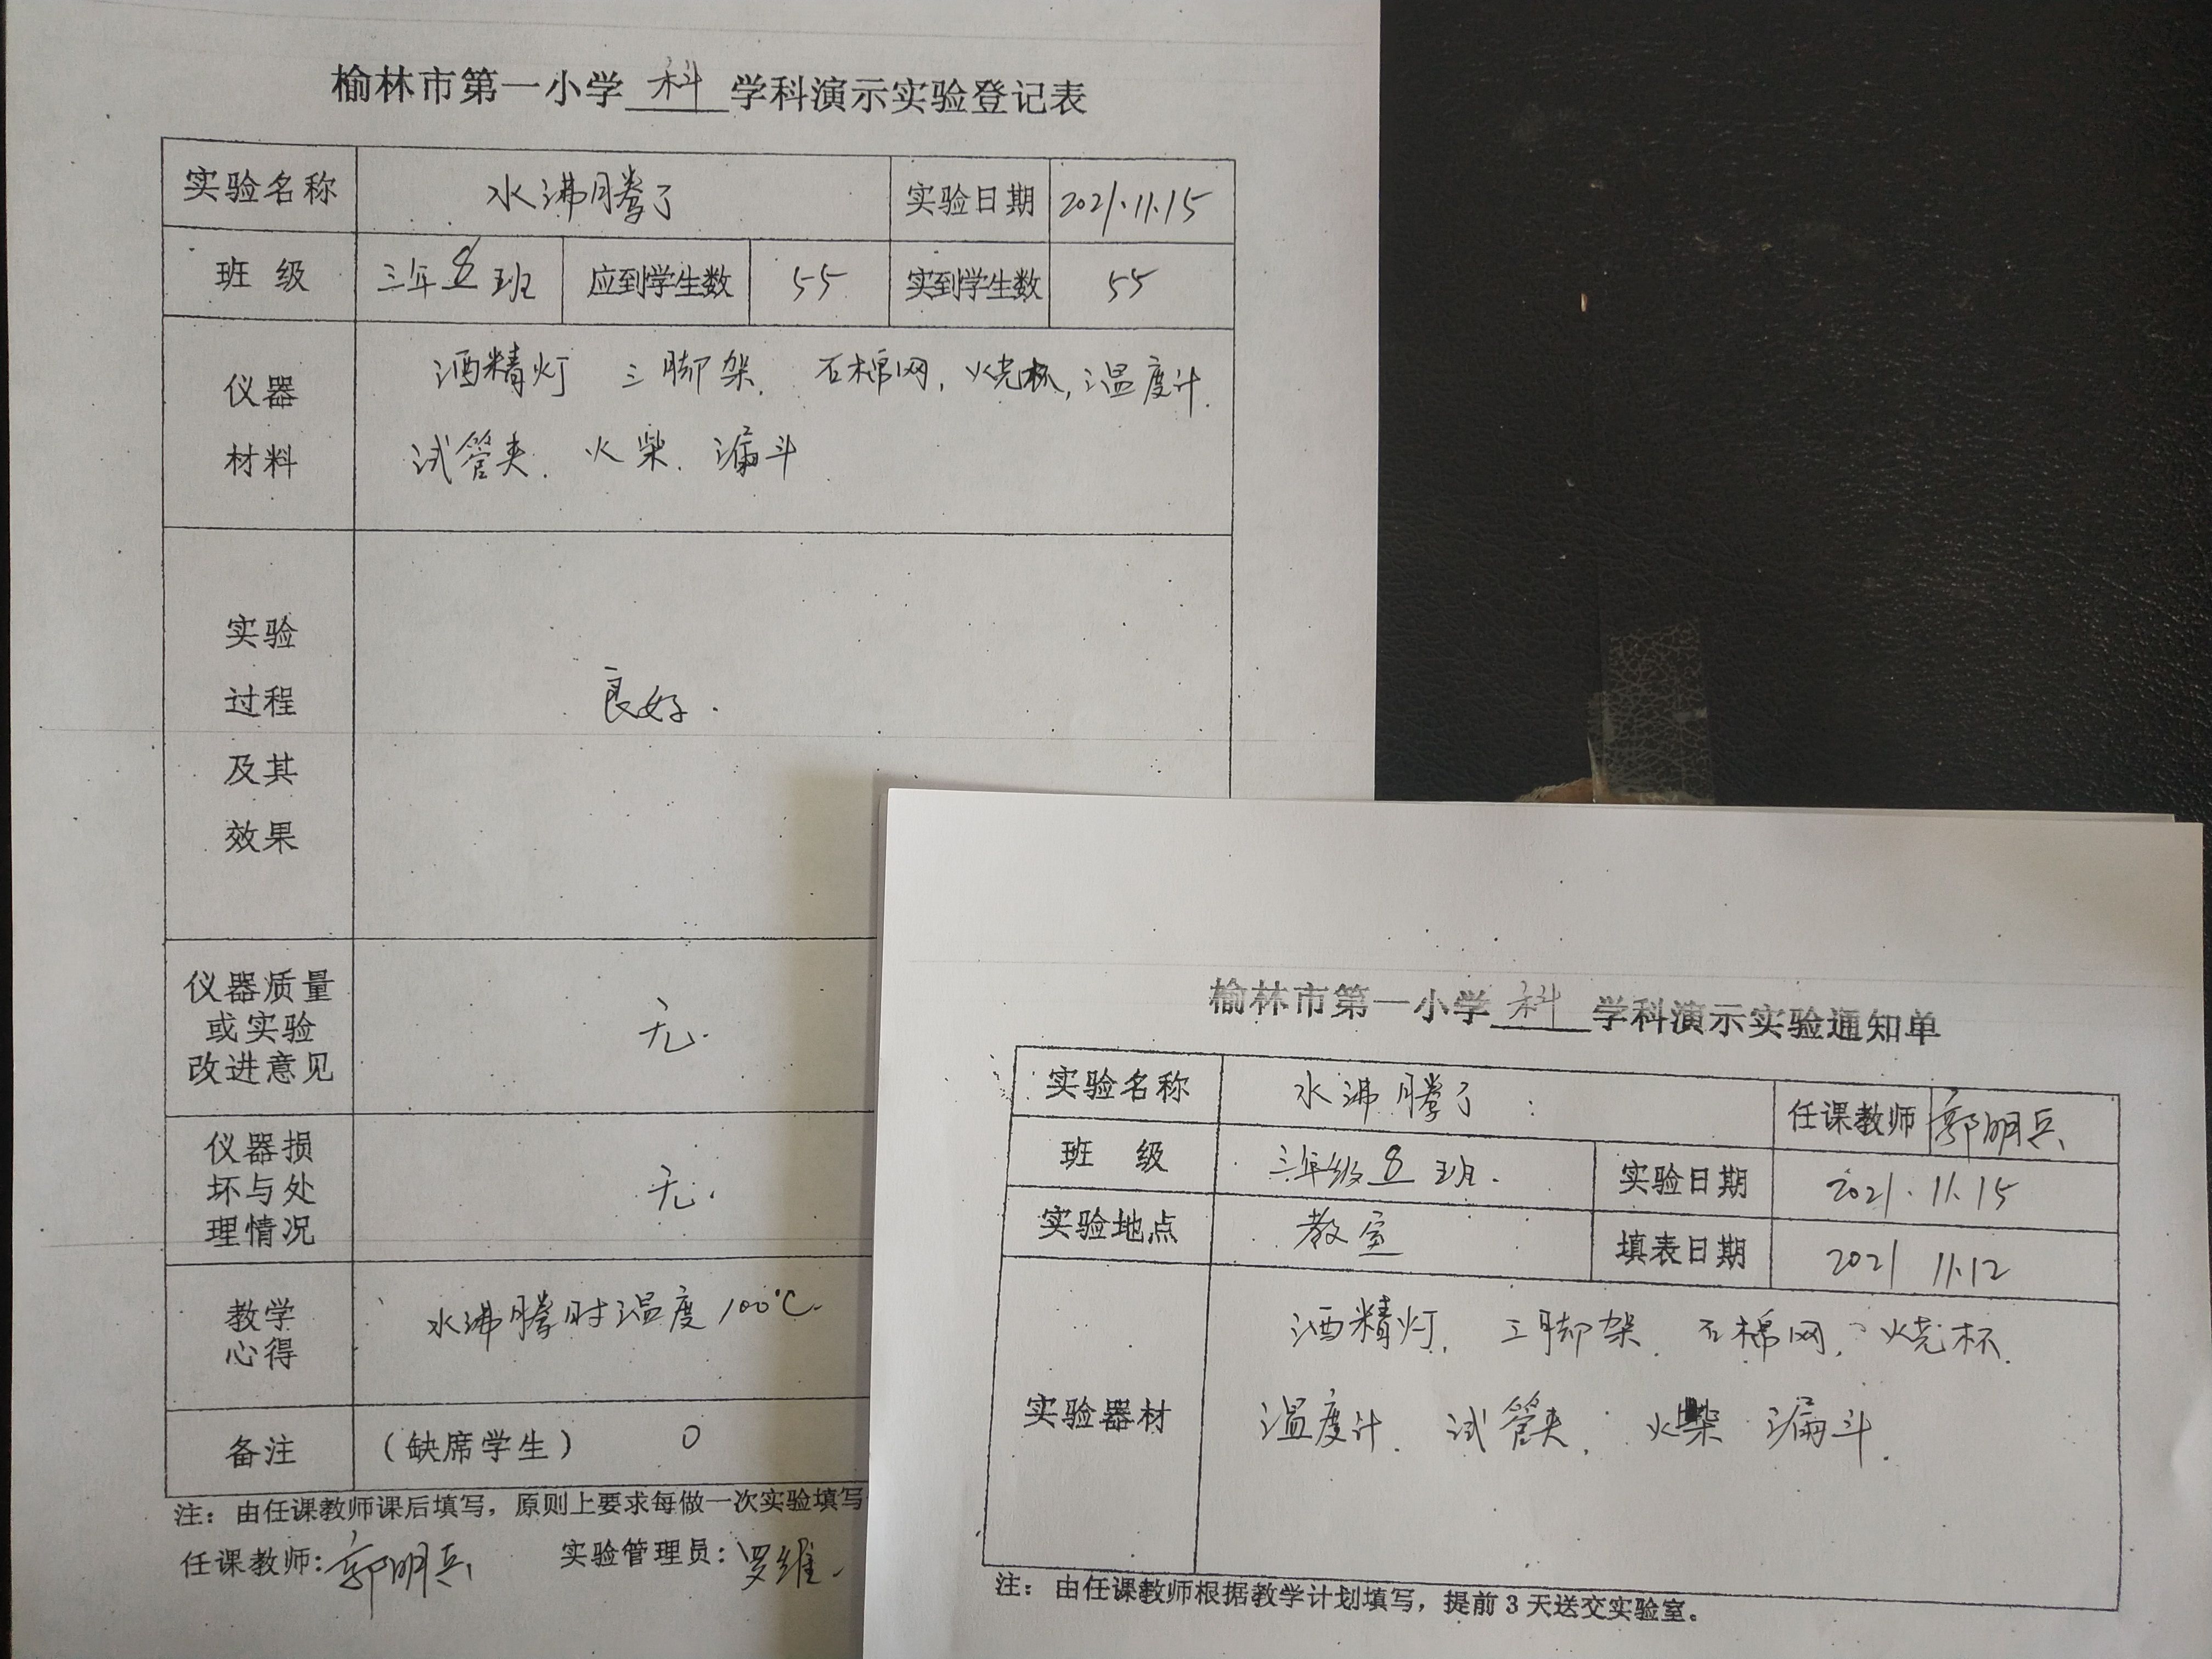 榆林市第一小学 科 学科演示实验登记表
实验名称 水沸腾了 实验日期 2021.11.15
班 级 三年8班 应到学生数 55 实到学生数 55
仪器
材料
酒精灯 三脚架. 石棉网, 烧杯, 温度计.
试管夹. 火柴. 漏斗
实验
过程
及其
效果
良好.
仪器质量
或实验
改进意见
无.
仪器损
坏与处
理情况
无.
教学
心得
水沸腾时温度100℃.
备注 (缺席学生) 0
注：由任课教师课后填写，原则上要求每做一次实验填写
任课教师:郭明兵 实验管理员:罗维.
榆林市第一小学 科 学科演示实验通知单
实验名称 水沸腾了 任课教师 郭明兵
班 级 三年级8班. 实验日期 2021.11.15
实验地点 教室 填表日期 2021 11.12
实验器材
酒精灯. 三脚架. 石棉网. 烧杯.
温度计. 试管夹. 火柴 漏斗.
注：由任课教师根据教学计划填写，提前3天送交实验室。